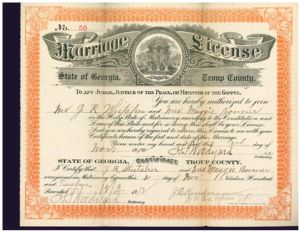 No. 50
Marriage License
State of Georgia, Troup County.
TO ANY JUDGE, JUSTICE OF THE PEACE, OR MINISTER OF THE GOSPEL.
You are hereby authorized to join
Mr J. R. Whitaker and Miss Maggie Bonner
in the Holy State of Matrimony, according to the Constitution and
Laws of this State and for so doing this shall be your License
And you are hereby required to return this License to me with your
Certificate hereon of the fact and date of
Given under my hand and seal this day of
Nov
STATE OF GEORGIA, CERTIFICATE TROUP COUNTY.
I Certify that J. R. Whitaker and Miss Maggie Bonner
were joined in Matrimony by me this 3 day of Nov Nineteen Hundred
and Twelve